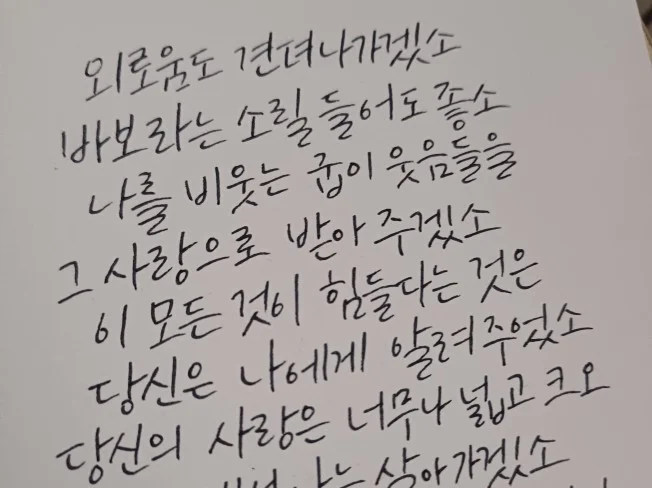 외로움도 견뎌나가겠소
바보라는 소릴 들어도 좋소
나를 비웃는 굽이 웃음들을
그 사랑으로 받아 주겠소
이 모든 것이 힘들다는 것은
당신은 나에게 알려주었소
당신의 사랑은 너무나 넓고 크오
나는 살아가겠소